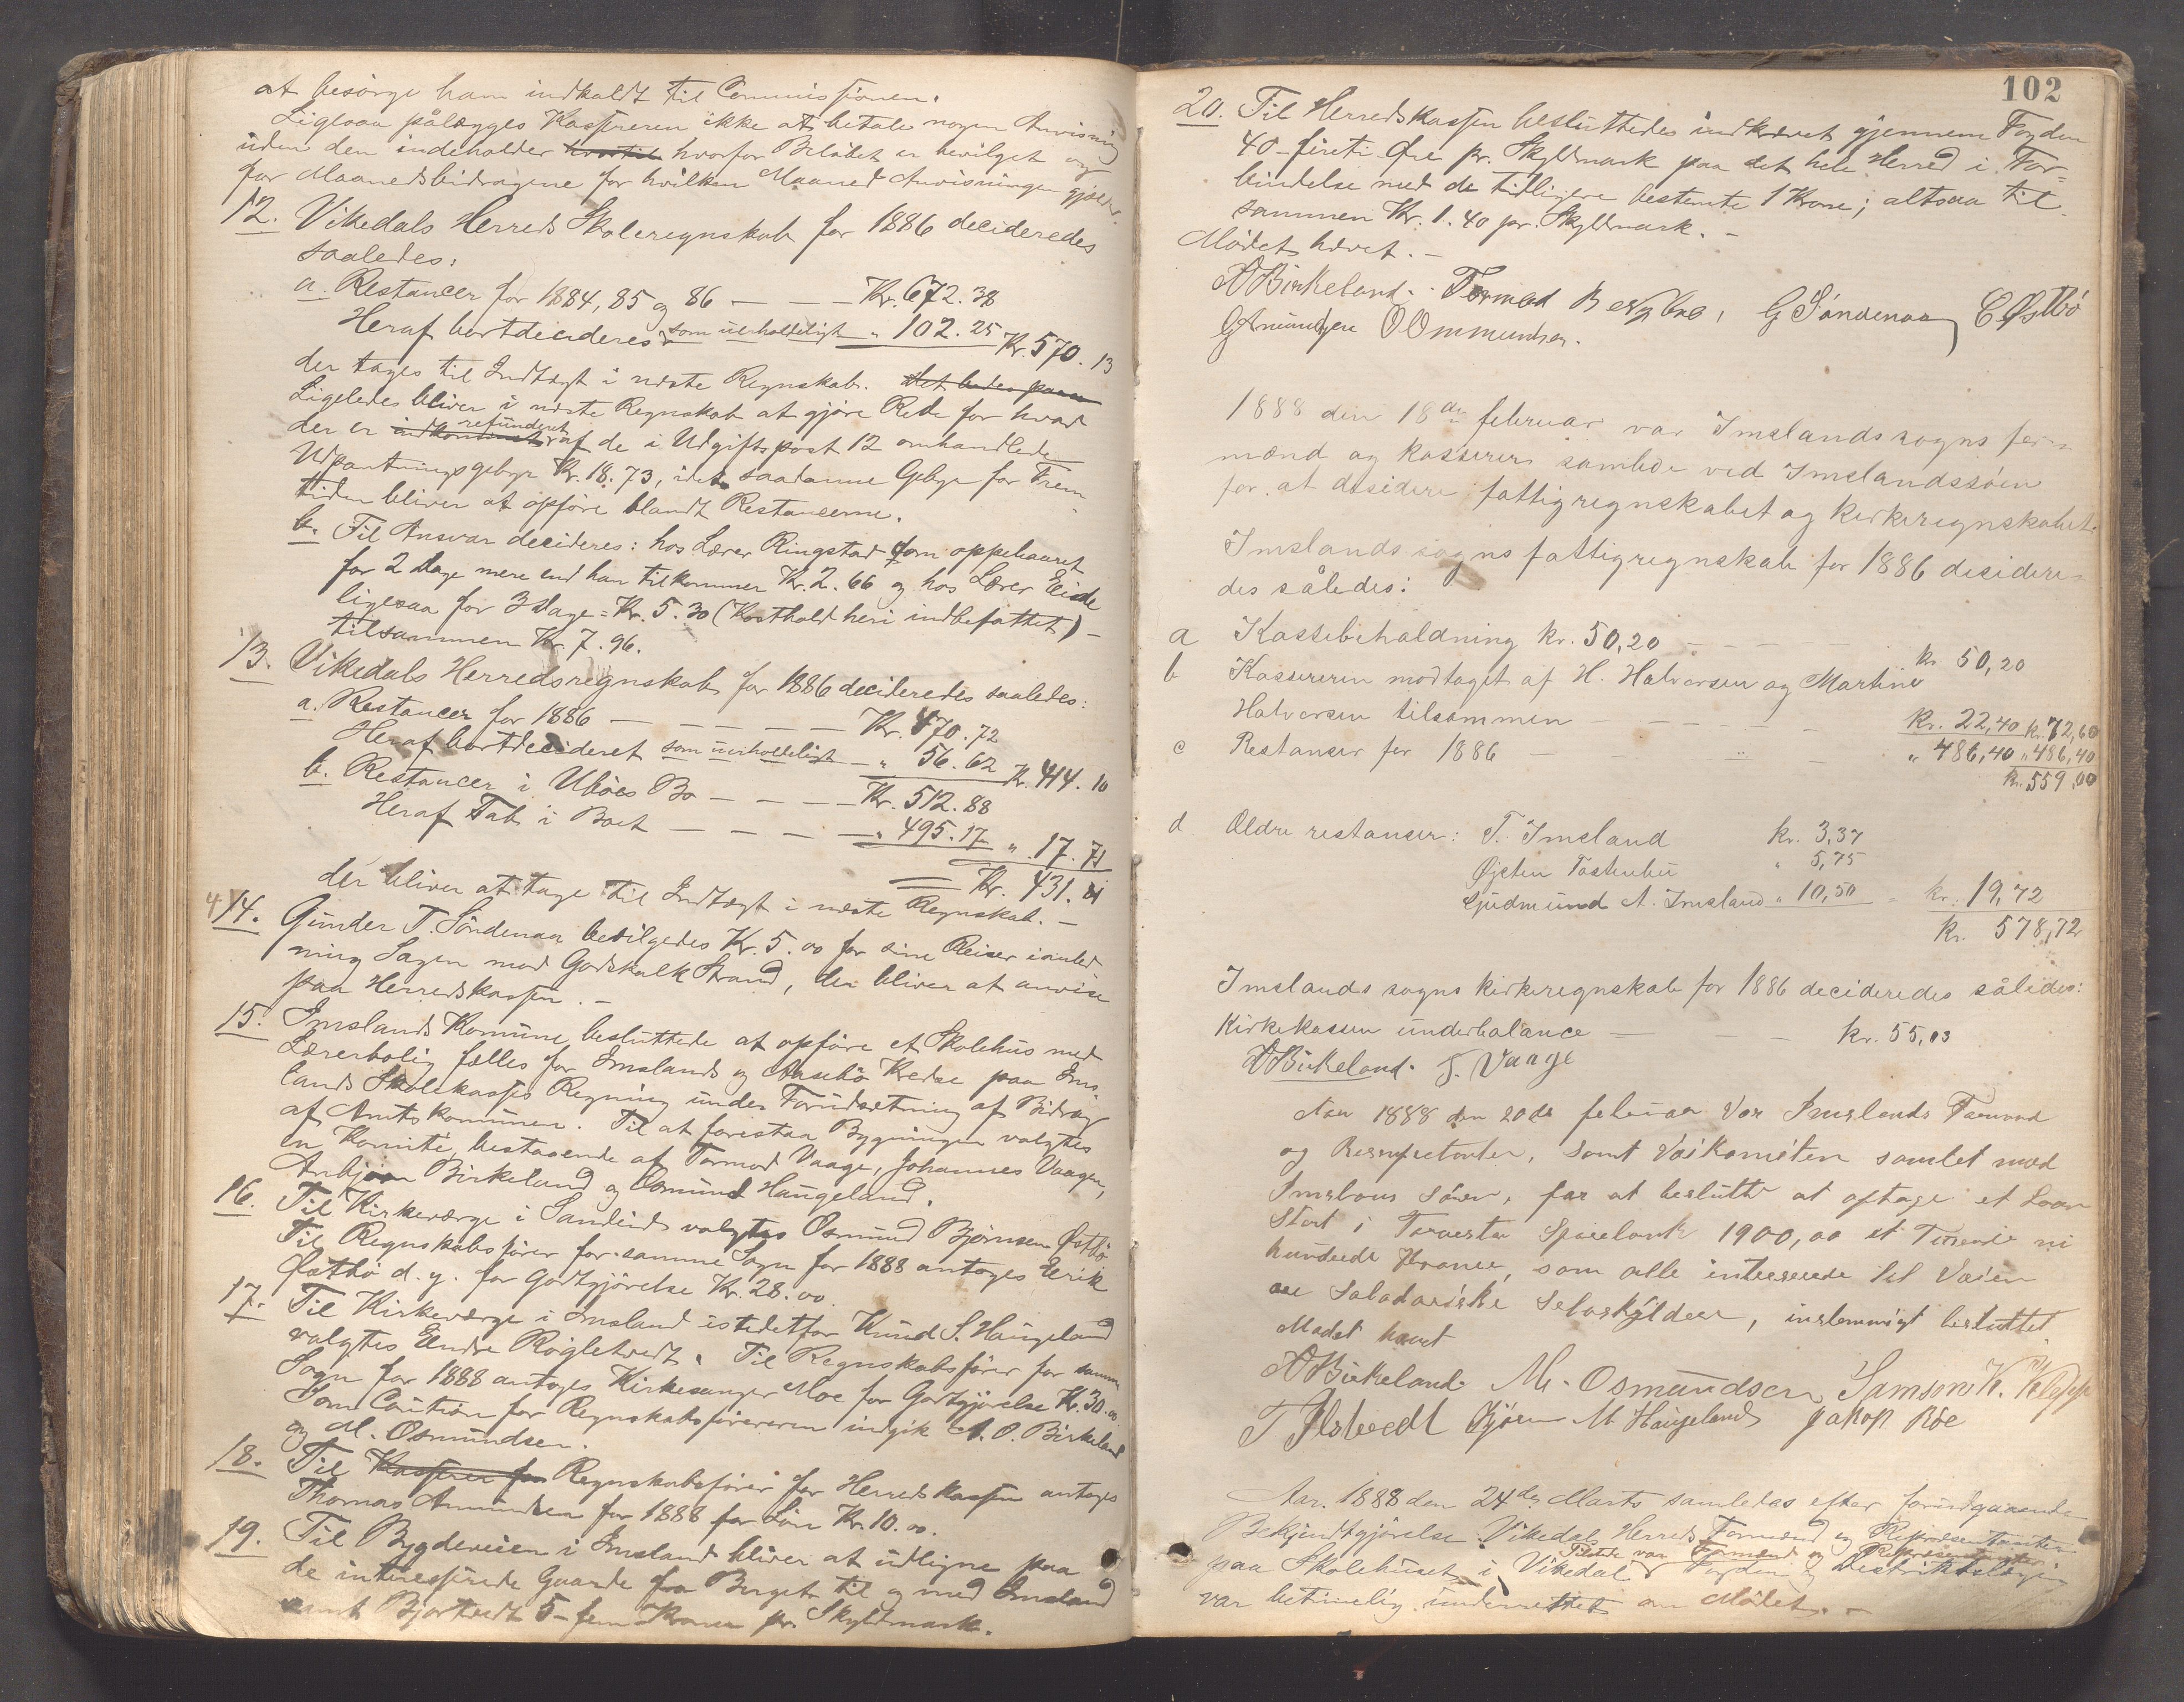 at besörge ham indkaldt til Commissionen.
Ligesaa pålægges Kassereren ikke at betale nogen Anvisning
uden den indeholder hvortil hvorfor Beløbet er bevilget og
for Maanedsbidragene for hvilken Maaned Anvisningen gjælder.
12. Vikedals Herreds Skoleregnskab for 1886 decideredes
saaledes:
a. Restancer for 1884, 85 og 86 — — — Kr. 672.38
Heraf bortdecideres som uerholdeligt " 102.25 Kr. 570.13
der tages til Indtægt i næste Regnskab. det bedes paa
Ligeledes bliver i næste Regnskab at gjöre Rede for hvad
der er indkommet refunderet af de i Udgiftspost 12 omhandlede
Udpantningsgebyr Kr. 18.73, idet saadanne Gebyr for Frem-
tiden bliver at opföre blandt Restancerne.
b. Til Ansvar decideres: hos Lærer Ringstad som oppebaaret
for 2 Dage mere end han tilkommer Kr. 2.66 og hos Lærer Eide
ligesaa for 3 Dage = Kr. 5.30 (Kosthold heri indbefattet) —
tilsammen Kr. 7.96.
13. Vikedals Herredsregnskab for 1886 decideredes saaledes:
a. Restancer for 1886 — — — — — Kr. 470.72
Heraf bortdecideret som uerholdeligt — " 56.62 Kr. 414.10
b. Restancer i Ubøes Bo — — — — Kr. 512.88
Heraf Tab i Boet — — — — " 495.17 " 17.71
Kr. 431.81
der bliver at tage til Indtægt i næste Regnskab. —
14. Gunder T. Söndenaa bevilgedes Kr. 5.00 for sine Reiser i anled-
ning Sagen mod Godskalk Strand, der bliver at anvise
paa Herredskassen. —
15. Imslands Komune besluttede at opföre et Skolehus med
Lærerbolig fælles for Imslands og Aasebø Kredse paa Ims-
lands Skolekasses Regning under Forudsætning af Bidrag
af Amtskomunen. Til at forestaa Bygningen valgtes
en Komite, bestaaende af Tormod Vaage, Johannes Vaage,
Anbjørn Birkeland og Osmund Haugeland.
16. Til Kirkeværge i Sandeid valgtes Osmund Björnsen Østbö
Til Regnskabsfører for samme Sogn for 1888 antoges Eerik
Østbö d. y. for Godtgjörelse Kr. 28.00
17. Til Kirkeværge i Imsland istedetfor Knud S. Haugeland
valgtes Endre Rögletvedt. Til Regnskabsfører for samme
Sogn for 1888 antoges Kirkesanger Moe for Godtgjörelse Kr. 30.00
Som Caution for Regnskabsføreren indgik A. O. Birkeland
og M. Osmundsen.
18. Til Kasserer for Regnskabsfører for Herredskassen antoges
Thomas Amundsen for 1888 for Løn Kr. 10.00.
19. Til Bygdeveien i Imsland bliver at udligne paa
de interesserede Gaarde fra Berget til og med Imsland
samt Bjortvedt 5 – fem Kroner pr. Skyldmark.
102
20. Til Herredskassen besluttedes indkrævet gjennem Fogden
40 – fireti Øre pr. Skyldmark paa det hele Herred i For-
bindelse med de tidligere bestemte 1 Krone; altsaa til-
sammen Kr. 1.40 pr. Skyldmark. —
Mödet hævet. —
A Birkeland. Tormod Bergbro, G Söndenaa E Østbö
G Amundsen O Ommundsen.
1888 den 18de februar var Imslandssogns for-
mænd og kasserer samlede ved Imslandssöen
for at desidere fattigregnskabet og kirkeregnskabet.
Imslands sogns fattigregnskab for 1886 desidere-
des således:
a Kassebeholdning kr. 50,20 — — — kr. 50,20
b Kassereren modtaget af H. Halvorsen og Martine
Halvorsen tilsammen — — — Kr. 22,40 kr. 72,60
c Restanser for 1886 — — — " 486,40 " 486,40
kr. 559,00
d Ældre restanser: T. Imsland kr. 3,37
Øjsten Tostenbu " 5,75
Gudmund A. Imsland " 10,50 = kr. 19,72
kr. 578,72
Imslands sogns kirkeregnskab for 1886 decideredes således:
Kirkekassen underbalance — — — kr. 55,03
A Birkeland. T. Vaage
Aar 1888 den 20de februar var Imslands Formænd
og Representanter, samt Veikomiten samlet med
Imslands söen, for at beslutte at optage et Laan
Stort i Sparebank 1900,00 et Tusende ni
hundrede Kroner, som alle interserede til Veien
ere Solodariske Selvskyldner, instemmigt besluttet.
Mødet hævet
A Birkeland M. Osmundsen Samson K.
T Ilstvedt Bjørn M Haugeland Jakop Röe
Aar. 1888 den 24de Marts samledes efter forudgaaende
Bekjendtgjörelse Vikedals Herreds Formænd og Repræsentanter
paa Skolehuset i Vikedal. Tilstede var Formænd og Repræsentanter Fogden og Distriktslægen
var betimelig underrettet om Mödet. —